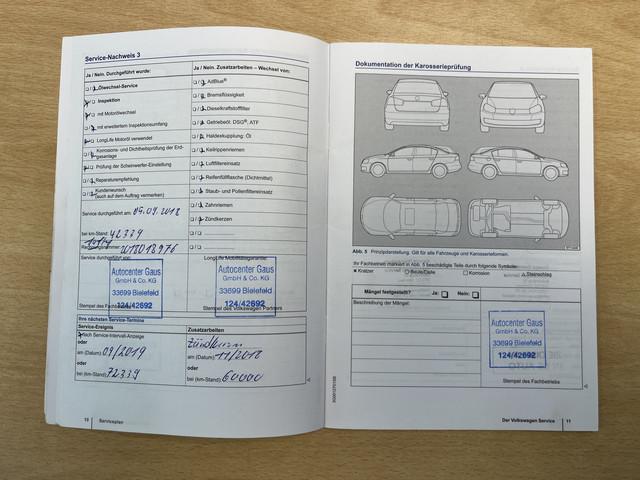 Service-Nachweis 3
Ja / Nein. Durchgeführt wurde:
Ölwechsel-Service
Inspektion
mit Motorölwechsel
mit erweitertem Inspektionsumfang
LongLife Motoröl verwendet
Korrosions- und Dichtheitsprüfung der Erdgasanlage
Prüfung der Scheinwerfer-Einstellung
Reparaturempfehlung
Kundenwunsch
(auch auf dem Auftrag vermerken)
Service durchgeführt am: 05.09.2018
bei km-Stand: 42339
Rechnungsnummer:
Service durchgeführt von:
Autocenter Gaus
GmbH & Co. KG
33699 Bielefeld
124/42692
Stempel des Fachbetriebs
Ja / Nein. Zusatzarbeiten – Wechsel von:
AdBlue®
Bremsflüssigkeit
Dieselkraftstofffilter
Getriebeöl: DSG®, ATF
Haldexkupplung: Öl
Keilrippenriemen
Luftfiltereinsatz
Reifenfüllflasche (Dichtmittel)
Staub- und Pollenfiltereinsatz
Zahnriemen
Zündkerzen
LongLife Mobilitätsgarantie:
Autocenter Gaus
GmbH & Co. KG
33699 Bielefeld
124/42692
Stempel des Volkswagen Partners
Ihre nächsten Service-Termine
Service-Ereignis
Nach Service-Intervall-Anzeige
oder
am (Datum): 09/2019
oder
bei (km-Stand): 72339
Zusatzarbeiten
Zündkerzen
am (Datum): 11/2018
oder
bei (km-Stand): 60000
10 Serviceplan
Dokumentation der Karosserieprüfung
Abb. 5 Prinzipdarstellung. Gilt für alle Fahrzeuge und Karosserieformen.
Ihr Fachbetrieb markiert in Abb. 5 beschädigte Teile durch folgende Symbole:
Kratzer
Beule/Delle
Korrosion
Steinschlag
Mängel festgestellt? Ja: Nein:
Beschreibung der Mängel:
Autocenter Gaus
GmbH & Co. KG
33699 Bielefeld
124/42692
Stempel des Fachbetriebs
Der Volkswagen Service 11